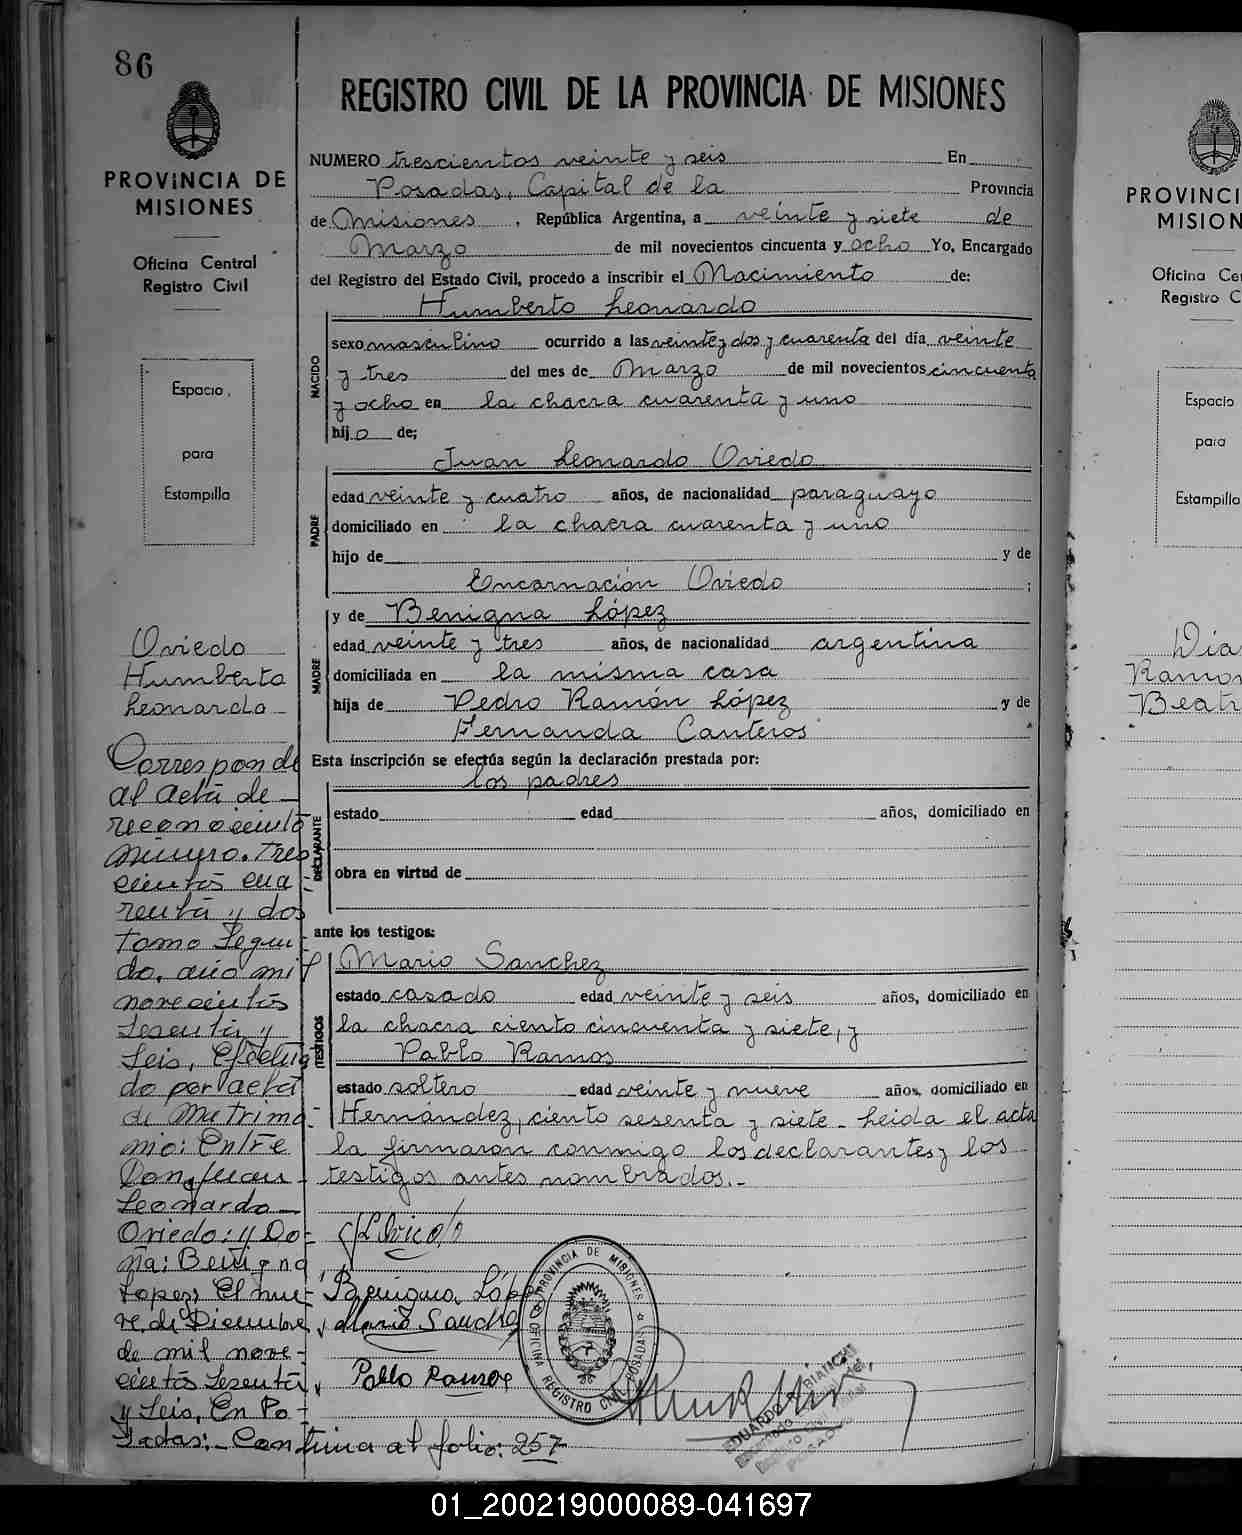 86
PROVINCIA DE
MISIONES
Oficina Central
Registro Civil
Espacio
para
Estampilla
Oviedo
Humberto
Leonardo
Corresponde
al acta de
reconocimiento
número. tres
cientos cua
renta y dos
tomo Segun
do, año mil
novecientos
sesenta y
seis, Efectua
do por acta
de Matrimo-
nio: Entre
Don Juan
Leonardo
Oviedo: y Do-
ña: Benigna
Lopez, El nue-
ve, de Diciembre
de mil nove-
cientos sesenta
y seis, En Po-
sadas:- Continua al folio: 257
REGISTRO CIVIL DE LA PROVINCIA DE MISIONES
NUMERO trescientos veinte y seis En
Posadas, Capital de la Provincia
de Misiones, República Argentina, a veinte y siete de
Marzo de mil novecientos cincuenta y ocho Yo, Encargado
del Registro del Estado Civil, procedo a inscribir el Nacimiento de:
Humberto Leonardo
NACIDO
sexo masculino ocurrido a las veinte y dos y cuarenta del día veinte
y tres del mes de Marzo de mil novecientos cincuenta
y ocho en la chacra cuarenta y uno
hijo de;
Juan Leonardo Oviedo
PADRE
edad veinte y cuatro años, de nacionalidad paraguayo
domiciliado en la chacra cuarenta y uno
hijo de y de
Encarnación Oviedo ;
y de Benigna López
MADRE
edad veinte y tres años, de nacionalidad argentina
domiciliada en la misma casa
hija de Pedro Ramón López y de
Fernanda Canteros
Esta inscripción se efectúa según la declaración prestada por:
los padres
DECLARANTE
estado edad años, domiciliado en
obra en virtud de
ante los testigos:
Mario Sanchez
TESTIGOS
estado casado edad veinte y seis años, domiciliado en
la chacra ciento cincuenta y siete, y
Pablo Ramos
estado soltero edad veinte y nueve años, domiciliado en
Hernández, ciento sesenta y siete - Leida el acta
la firmaron conmigo los declarantes y los
testigos antes nombrados.-
Benigna López
Mario Sanchez
Pablo Ramos
PROVINCIA DE MISIONES
OFICINA REGISTRO CIVIL POSADAS
EDUARDO BIANCHI
PROVINCI
MISION
Oficina Ce
Registro C
Espacio
para
Estampilla
Ramon
Beatr
01_200219000089-041697